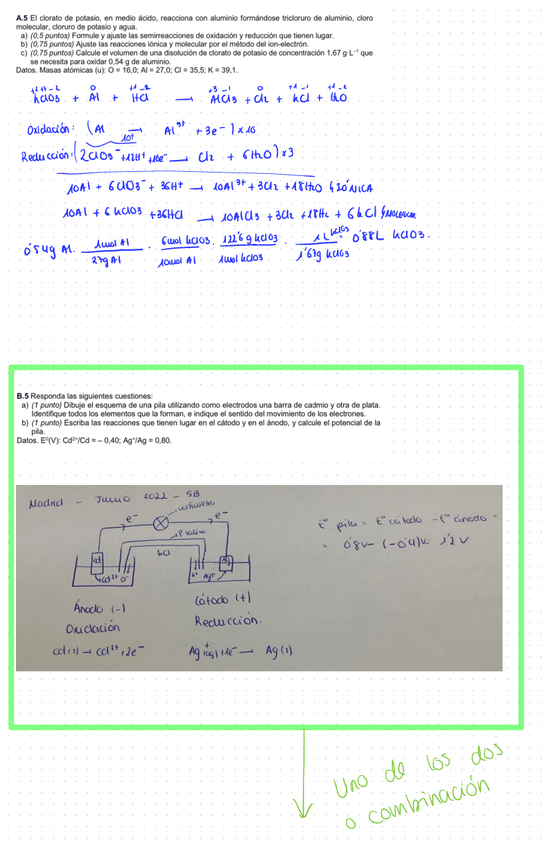 A.5 El clorato de potasio, en medio ácido, reacciona con aluminio formándose tricloruro de aluminio, cloro
molecular, cloruro de potasio y agua.
a) (0,5 puntos) Formule y ajuste las semirreacciones de oxidación y reducción que tienen lugar.
b) (0,75 puntos) Ajuste las reacciones iónica y molecular por el método del ion-electrón.
c) (0,75 puntos) Calcule el volumen de una disolución de clorato de potasio de concentración 1,67 g·L⁻¹ que
se necesita para oxidar 0,54 g de aluminio.
Datos. Masas atómicas (u): O = 16,0; Al = 27,0; Cl = 35,5; K = 39,1.
+1 +1 -2 0 +1 -1 +3 -1 0 +1 -1 +1 -2
KClO3 + Al + HCl → AlCl3 + Cl2 + KCl + H2O
Oxidación: (Al → Al³⁺ + 3e⁻) × 10
10+
Reducción: (2ClO3⁻ + 12H⁺ + 10e⁻ → Cl2 + 6H2O) × 3
10Al + 6ClO3⁻ + 36H⁺ → 10Al³⁺ + 3Cl2 + 18H2O } IÓNICA
10Al + 6KClO3 + 36HCl → 10AlCl3 + 3Cl2 + 18H2 + 6KCl } MOLECULAR
0'54g Al · 1mol Al / 27g Al · 6mol KClO3 / 10mol Al · 122'6 g KClO3 / 1mol KClO3 · 1L KClO3 / 1'67g KClO3 = 0'88L KClO3.
B.5 Responda las siguientes cuestiones:
a) (1 punto) Dibuje el esquema de una pila utilizando como electrodos una barra de cadmio y otra de plata.
Identifique todos los elementos que la forman, e indique el sentido del movimiento de los electrones.
b) (1 punto) Escriba las reacciones que tienen lugar en el cátodo y en el ánodo, y calcule el potencial de la
pila.
Datos. E⁰(V): Cd²⁺/Cd = – 0,40; Ag⁺/Ag = 0,80.
Madrid - Junio 2022 - 5B
voltímetro
e⁻ e⁻
P. salino
KCl
Cd Ag
Cd²⁺ Cl⁻ K⁺ Ag⁺
Ánodo (-) Cátodo (+)
Oxidación Reducción.
Cd(s) → Cd²⁺ + 2e⁻ Ag⁺(aq) + 1e⁻ → Ag(s)
E° pila = E° cátodo - E° ánodo =
= 0'8V - (-0'4)V = 1'2 V
Uno de los dos
o combinación